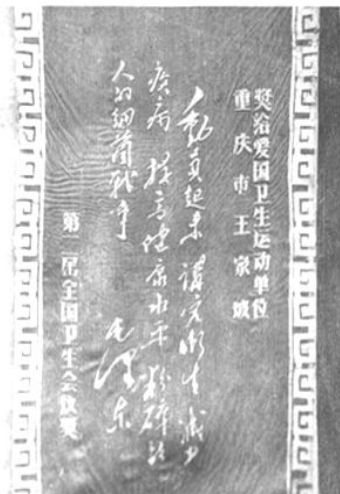 奖给爱国卫生运动单位
重庆市王家坡
动员起来讲究卫生减少
疾病提高健康水平粉碎敌
人的细菌战争
毛泽东
第二届全国卫生会议奖